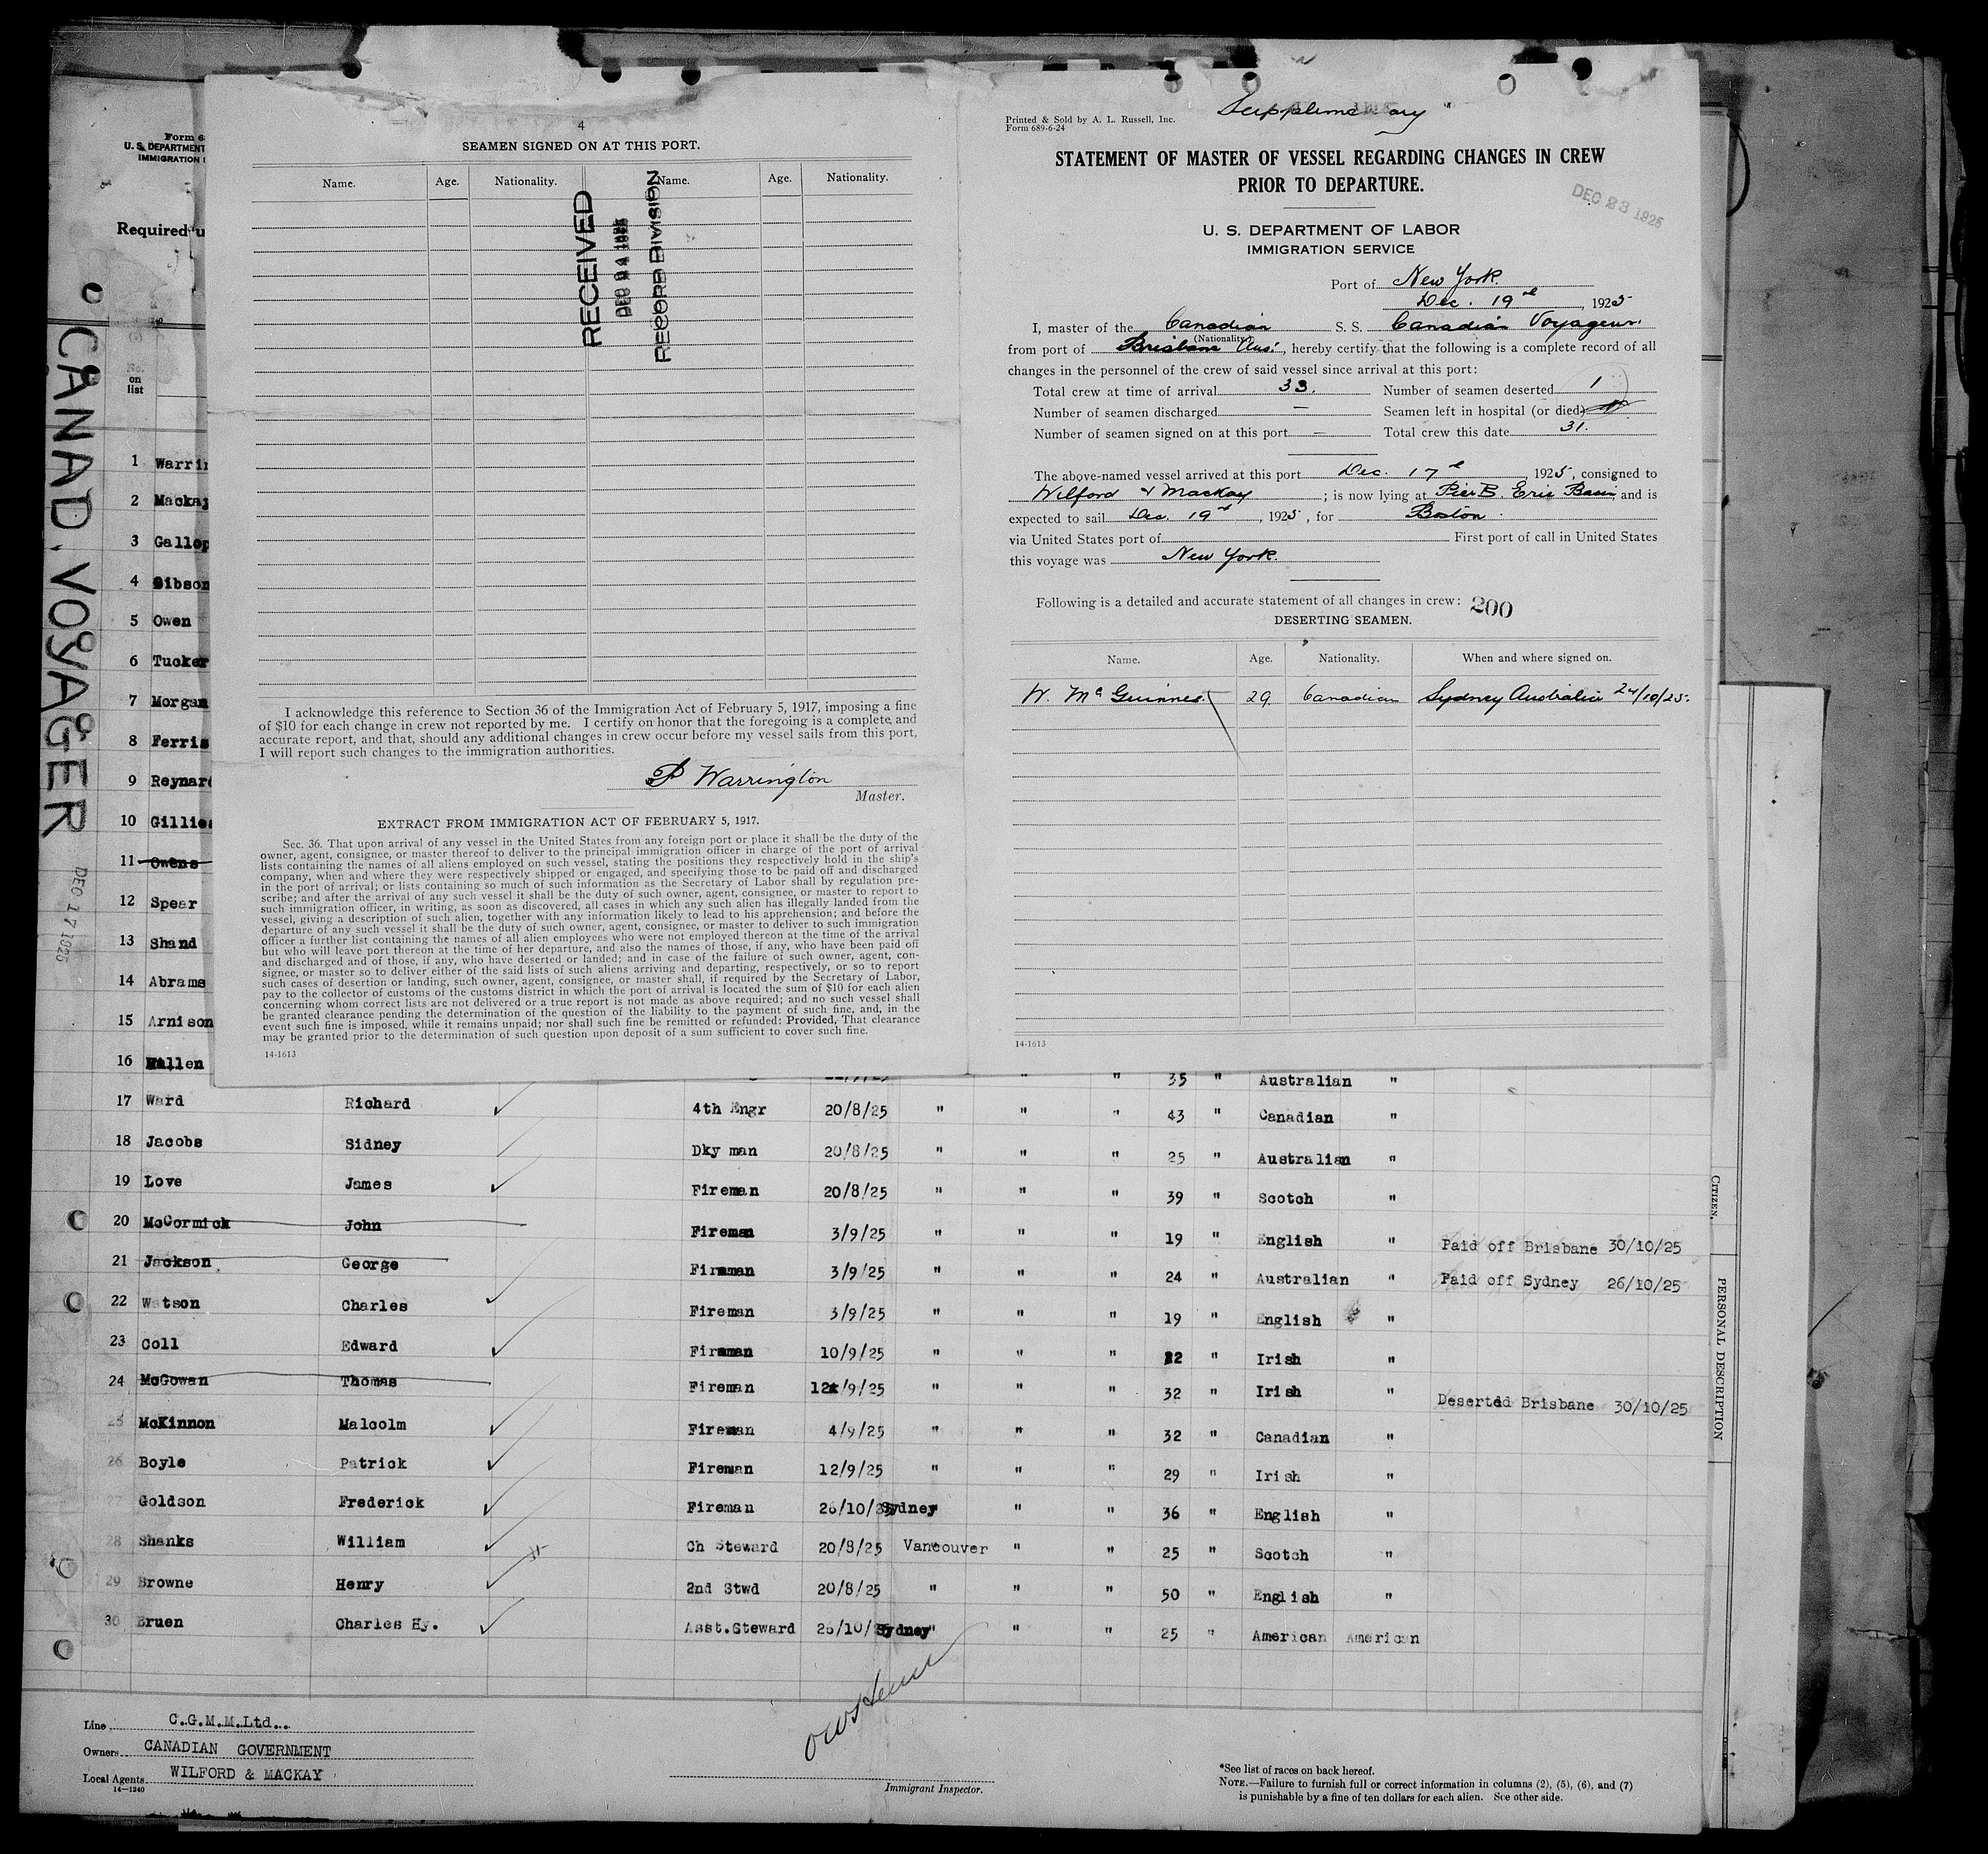 Form 6
U. S. DEPARTMENT
IMMIGRATION
Required u
No.
on
list
CANAD. VOYAGER
DEC 17 1925
4
SEAMEN SIGNED ON AT THIS PORT.
Name. Age. Nationality. Name. Age. Nationality.
RECEIVED
DEC 24 1925
RECORD DIVISION
I acknowledge this reference to Section 36 of the Immigration Act of February 5, 1917, imposing a fine
of $10 for each change in crew not reported by me. I certify on honor that the foregoing is a complete and
accurate report, and that, should any additional changes in crew occur before my vessel sails from this port,
I will report such changes to the immigration authorities.
P Warrington
Master.
EXTRACT FROM IMMIGRATION ACT OF FEBRUARY 5, 1917.
Sec. 36. That upon arrival of any vessel in the United States from any foreign port or place it shall be the duty of the
owner, agent, consignee, or master thereof to deliver to the principal immigration officer in charge of the port of arrival
lists containing the names of all aliens employed on such vessel, stating the positions they respectively hold in the ship's
company, when and where they were respectively shipped or engaged, and specifying those to be paid off and discharged
in the port of arrival; or lists containing so much of such information as the Secretary of Labor shall by regulation pre-
scribe; and after the arrival of any such vessel it shall be the duty of such owner, agent, consignee, or master to report to
such immigration officer, in writing, as soon as discovered, all cases in which any such alien has illegally landed from the
vessel, giving a description of such alien, together with any information likely to lead to his apprehension; and before the
departure of any such vessel it shall be the duty of such owner, agent, consignee, or master to deliver to such immigration
officer a further list containing the names of all alien employees who were not employed thereon at the time of the arrival
but who will leave port thereon at the time of her departure, and also the names of those, if any, who have been paid off
and discharged and of those, if any, who have deserted or landed; and in case of the failure of such owner, agent, con-
signee, or master so to deliver either of the said lists of such aliens arriving and departing, respectively, or so to report
such cases of desertion or landing, such owner, agent, consignee, or master shall, if required by the Secretary of Labor,
pay to the collector of customs of the customs district in which the port of arrival is located the sum of $10 for each alien
concerning whom correct lists are not delivered or a true report is not made as above required; and no such vessel shall
be granted clearance pending the determination of the question of the liability to the payment of such fine, and, in the
event such fine is imposed, while it remains unpaid; nor shall such fine be remitted or refunded: Provided, That clearance
may be granted prior to the determination of such question upon deposit of a sum sufficient to cover such fine.
14-1613
Printed & Sold by A. L. Russell, Inc.
Form 689-6-24
STATEMENT OF MASTER OF VESSEL REGARDING CHANGES IN CREW
PRIOR TO DEPARTURE.
DEC 23 1925
U. S. DEPARTMENT OF LABOR
IMMIGRATION SERVICE
Port of New York.
Dec. 19th, 1925
I, master of the Canadian S. S. Canadian Voyageur.
(Nationality)
from port of Brisbane Aus., hereby certify that the following is a complete record of all
changes in the personnel of the crew of said vessel since arrival at this port:
Total crew at time of arrival 33. Number of seamen deserted 1
Number of seamen discharged — Seamen left in hospital (or died)
Number of seamen signed on at this port — Total crew this date 31.
The above-named vessel arrived at this port Dec. 17th 1925, consigned to
Wilford & Mackay; is now lying at Pier B. Erie Basin, and is
expected to sail Dec. 19th, 1925, for Boston.
via United States port of First port of call in United States
this voyage was New York.
Following is a detailed and accurate statement of all changes in crew: 200
DESERTING SEAMEN.
Name. Age. Nationality. When and where signed on.
W. McGuinnes 29 Canadian Sydney Australia 24/10/25.
14-1613
1 Warri
2 Mackay
3 Gallop
4 Gibson
5 Owen
6 Tucker
7 Morgan
8 Ferris
9 Reynard
10 Gillies
11 Owens
12 Spear
13 Shand
14 Abrams
15 Arnison
16 Hallen " " 35 " Australian "
17 Ward Richard 4th Engr 20/8/25 " " " 43 " Canadian "
18 Jacobs Sidney Dky man 20/8/25 " " " 25 " Australian "
19 Love James Fireman 20/8/25 " " " 39 " Scotch "
20 McCormick John Fireman 3/9/25 " " " 19 " English " Paid off Brisbane 30/10/25
21 Jackson George Fireman 3/9/25 " " " 24 " Australian " Paid off Sydney 26/10/25
22 Watson Charles Fireman 3/9/25 " " " 19 " English "
23 Coll Edward Fireman 10/9/25 " " " 22 " Irish "
24 McGowan Thomas Fireman 12/9/25 " " " 32 " Irish " Deserted Brisbane 30/10/25
25 McKinnon Malcolm Fireman 4/9/25 " " " 32 " Canadian "
26 Boyle Patrick Fireman 12/9/25 " " " 29 " Irish "
27 Goldson Frederick Fireman 26/10/25 Sydney " " 36 " English "
28 Shanks William Ch Steward 20/8/25 Vancouver " " 25 " Scotch "
29 Browne Henry 2nd Stwd 20/8/25 " " " 50 " English "
30 Bruen Charles Hy. Asst.Steward 26/10/ Sydney " " 25 " American American
CITIZEN,
PERSONAL DESCRIPTION
Line C.G.M.M.Ltd..
Owners CANADIAN GOVERNMENT
Local Agents WILFORD & MACKAY
14—1240
Immigrant Inspector.
*See list of races on back hereof.
NOTE.—Failure to furnish full or correct information in columns (2), (5), (6), and (7)
is punishable by a fine of ten dollars for each alien. See other side.